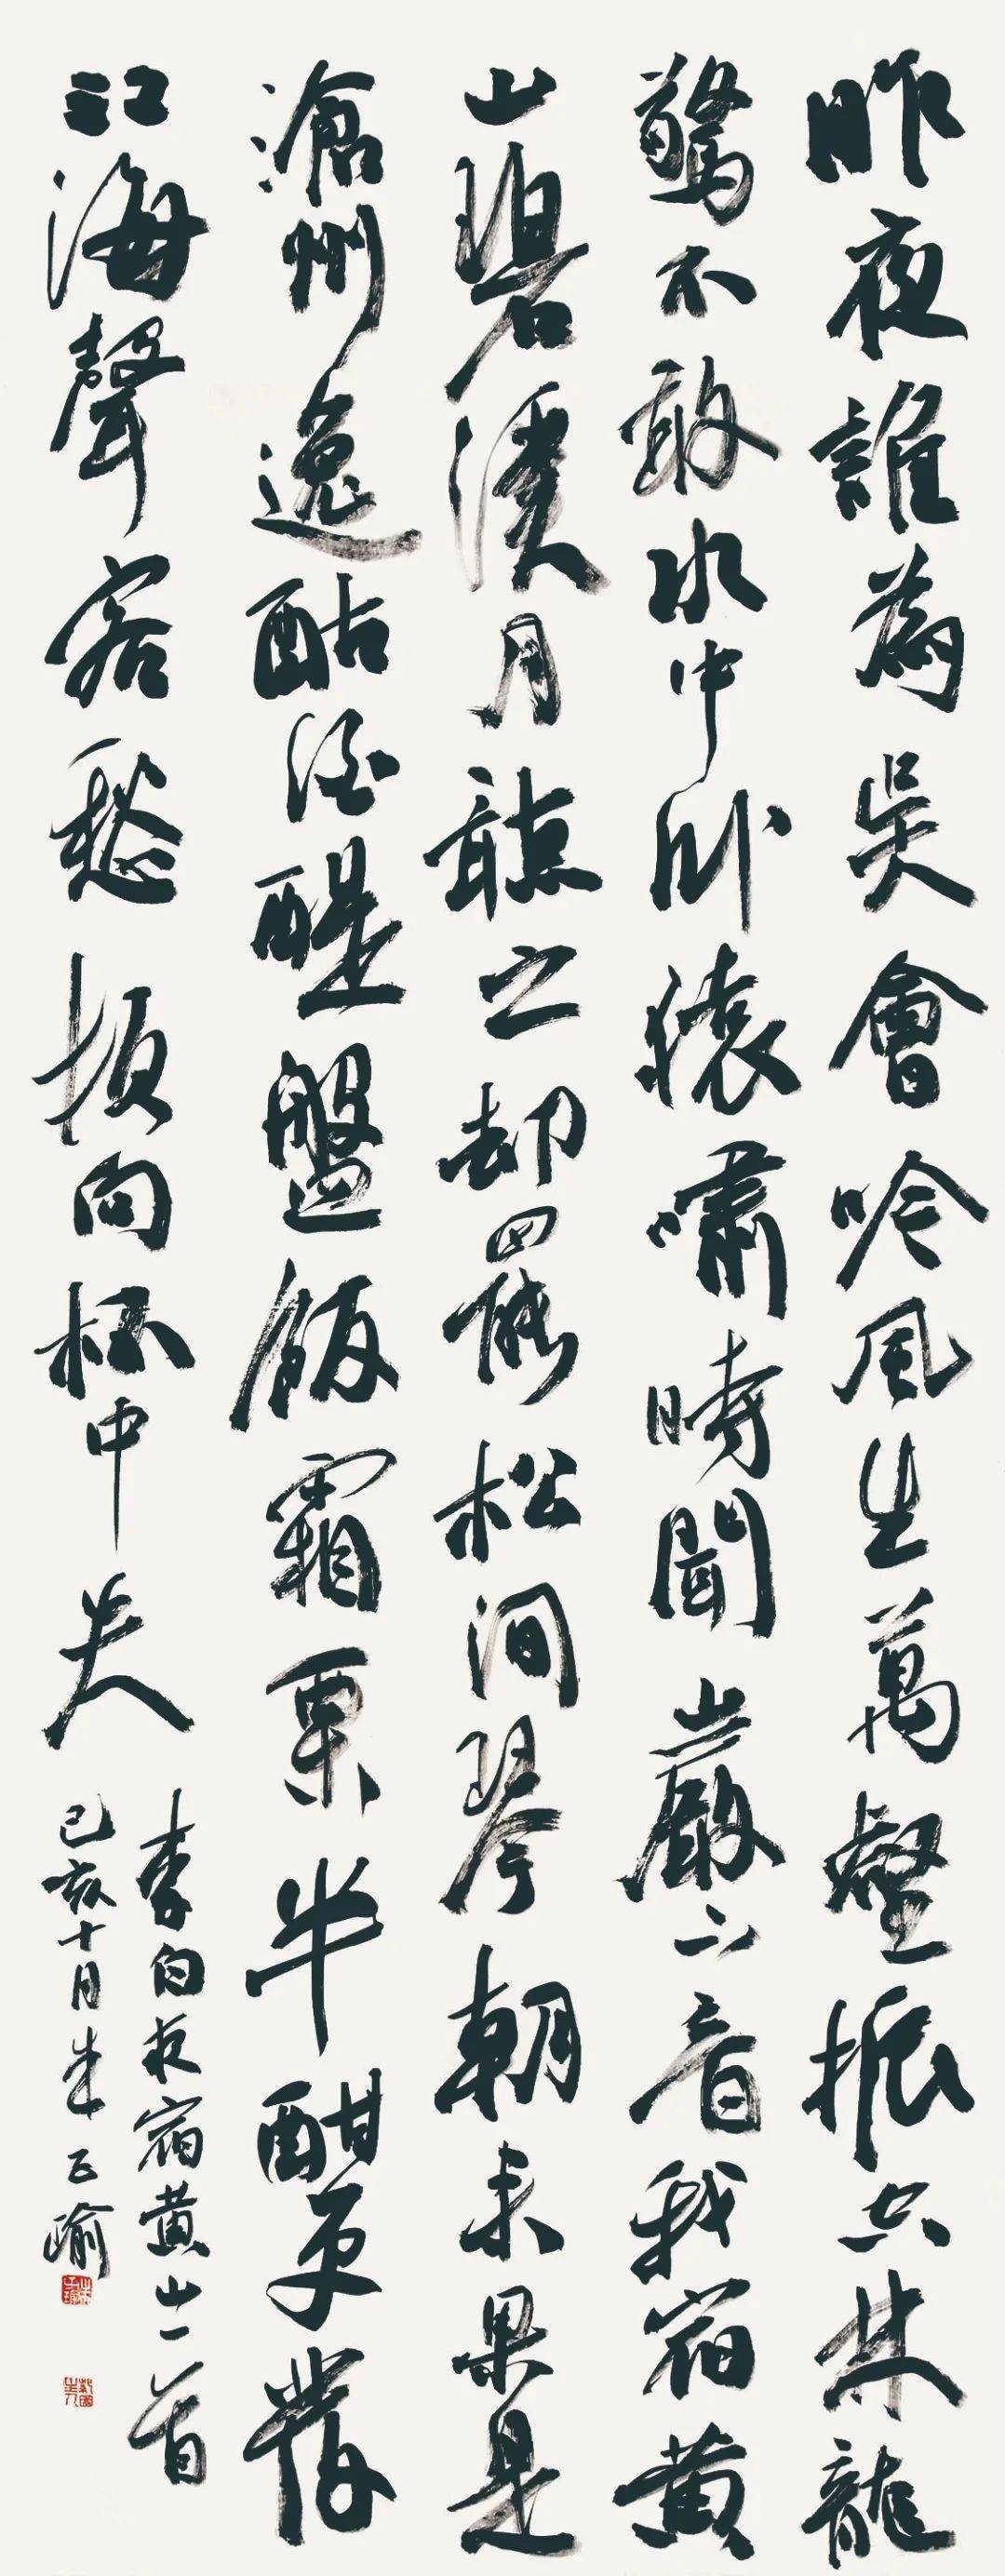 昨夜誰為吳會吟風生萬壑振空林龍
驚不敢水中臥猿嘯時聞巖下音我宿黃
山碧溪月聽之却罷松澗琴朝來果是
滄州逸酤酒醍盤飯霜栗半酣更發
江海聲客愁頓向杯中失
李白夜宿黃山一首
己亥十月朱